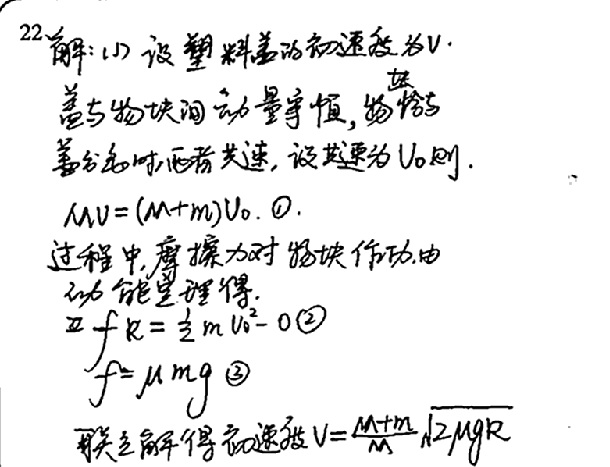 22.解:(1)设塑料盖的初速度为V.
盖与物块间动量守恒,物块恰与
盖分离时,两者共速,设共速为V₀则.
MV=(M+m)V₀. ①.
过程中,摩擦力对物块作功,由
动能定理得.
fR=½mV₀²-0②
f=μmg③
联立解得初速度V=\frac{M+m}{M}\sqrt{2μgR}